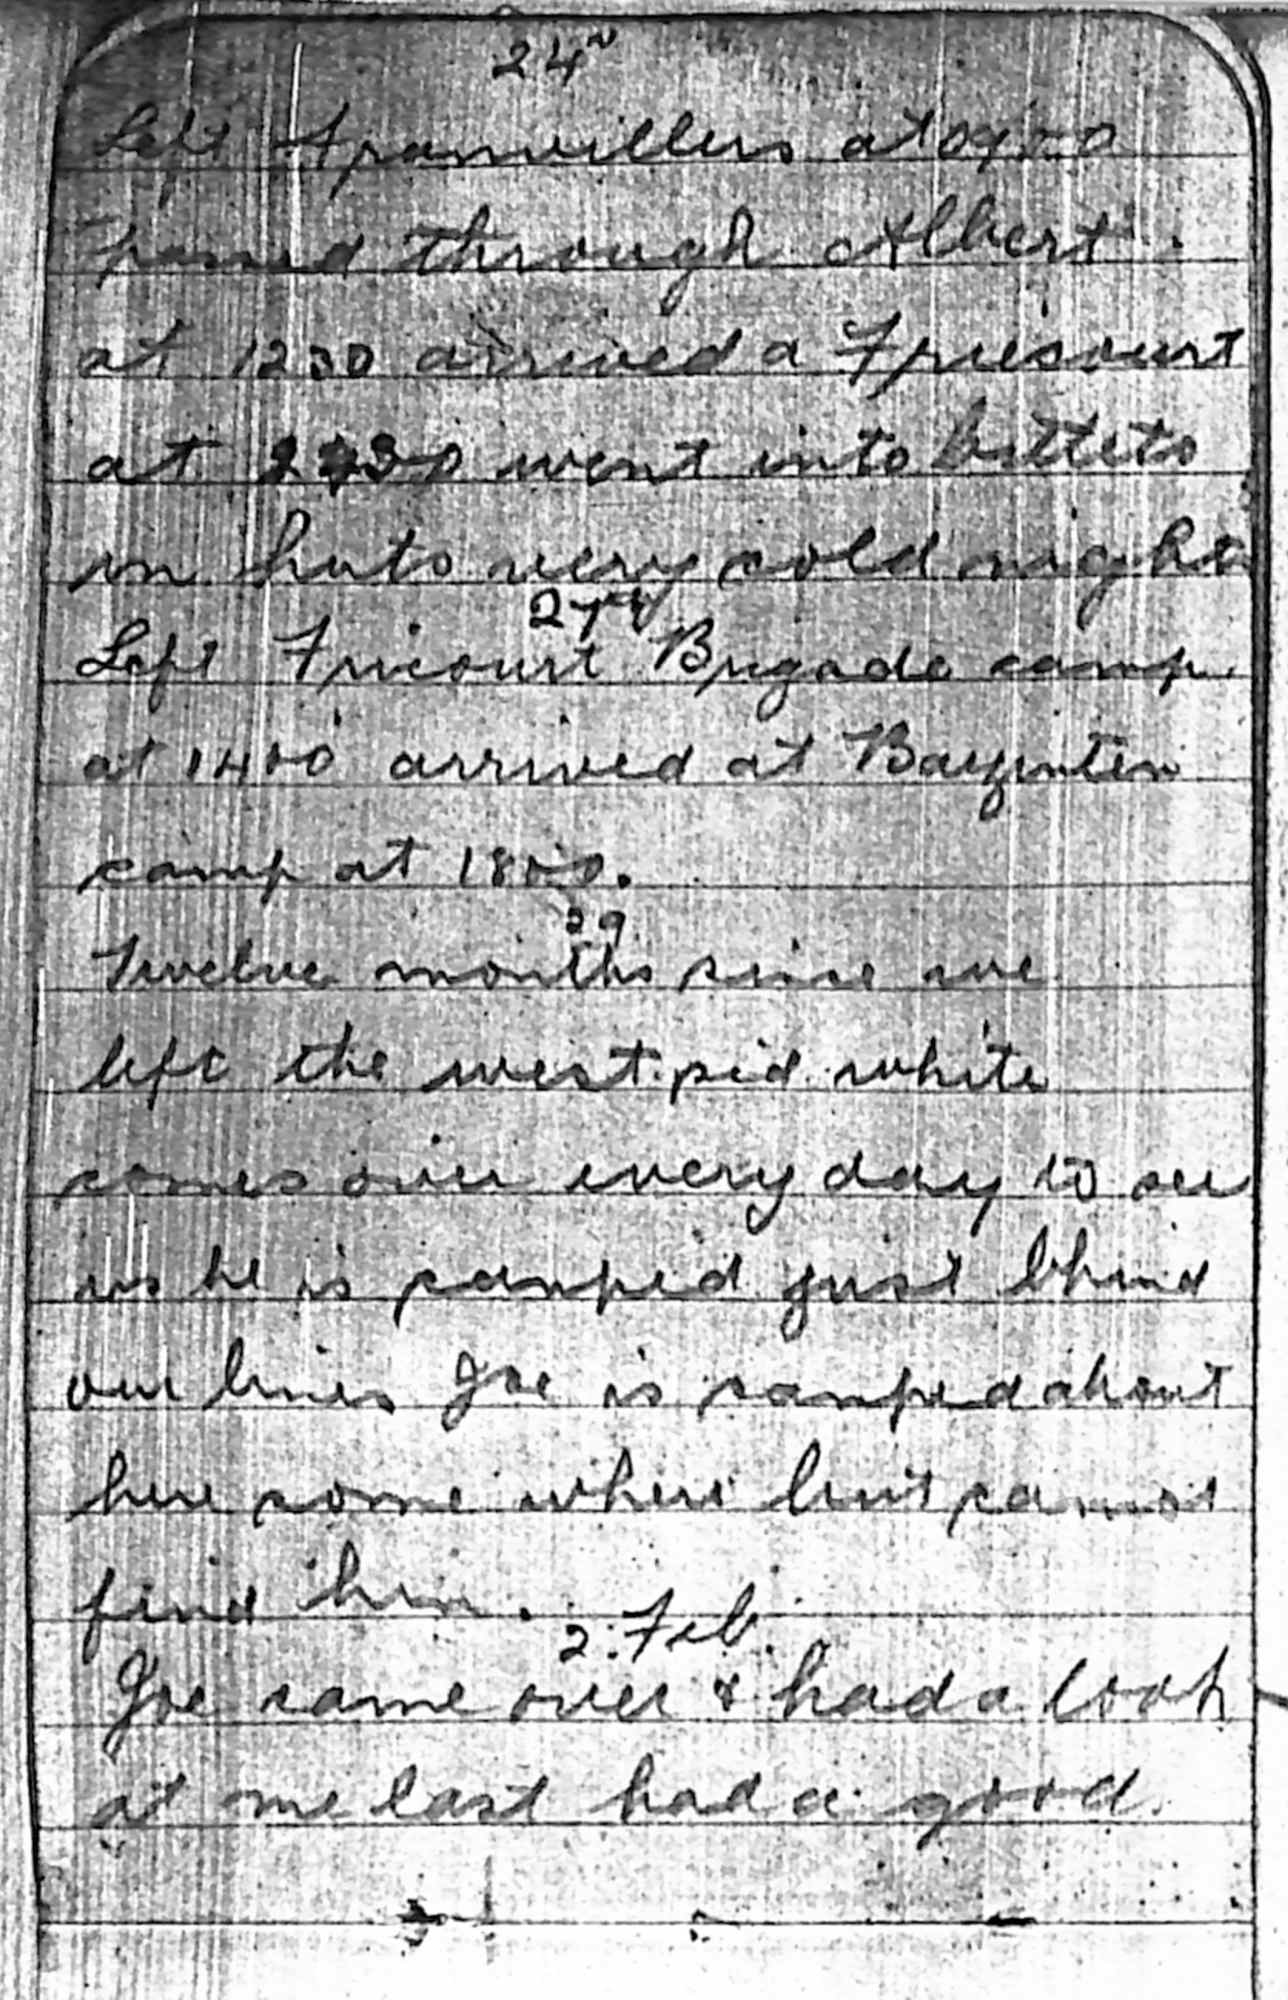 24
Left Franvillers at 0900
passed through Albert
at 1230 arrived a Friecourt
at went into billets
in huts very cold night
27th
Left Fricourt Brigade camp
at 1400 arrived at Bazentin
camp at 1800.
29
Twelve months since we
left the west. sid white
comes over every day to see
us he is camped just bhind
our lines Joe is camped about
here some where but cannot
find him.
2. Feb.
Joe came over & had a look
at me last had a good